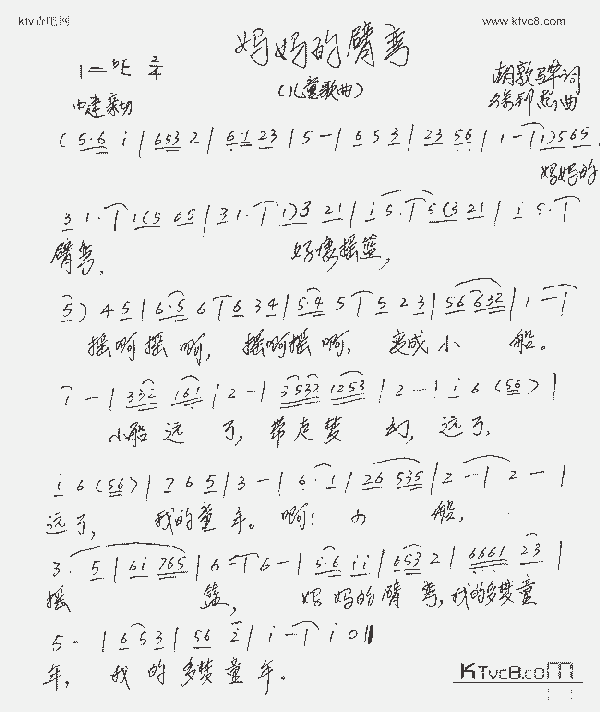 www.ktvc8.com
妈妈的臂弯
(儿童歌曲)
1= 2/4
中速 亲切
词
曲
(5·6 i | 653 2 | 6·1 23 | 5 - | 6 5 3 | 23 56 | 1 - | 1) 565
妈妈的
3 1· | 1(5 65 | 31· | 1) 3 21 | i 5· | 5(3 21 | i 5· |
臂弯, 好像摇篮,
5) 4 5 | 6·5 6 | 6 3 4 | 5·4 5 | 5 2 3 | 56 632 | 1 - |
摇啊摇啊, 摇啊摇啊, 变成小船。
1 - | 332 161 | 2 - | 3532 1253 | 2 - | i 6 (56) |
小船远了, 带走梦幻, 远了,
i 6 (56) | 7 6 5 | 3 - | 6·1 | 26 535 | 2 - | 2 - |
远了, 我的童年。啊! 小船,
3· 5 | 6i 765 | 6 - | 6 - | 5·6 ii | 653 2 | 6661 23 |
摇篮, 妈妈的臂弯, 我的多梦童
5 - | 6 5 3 | 56 2 | i - | i 0 ||
年, 我的多梦童年。
KTvc8.com